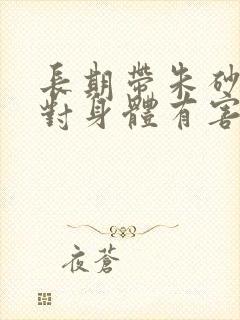 長期帶朱砂
對身體有害
夜蒼